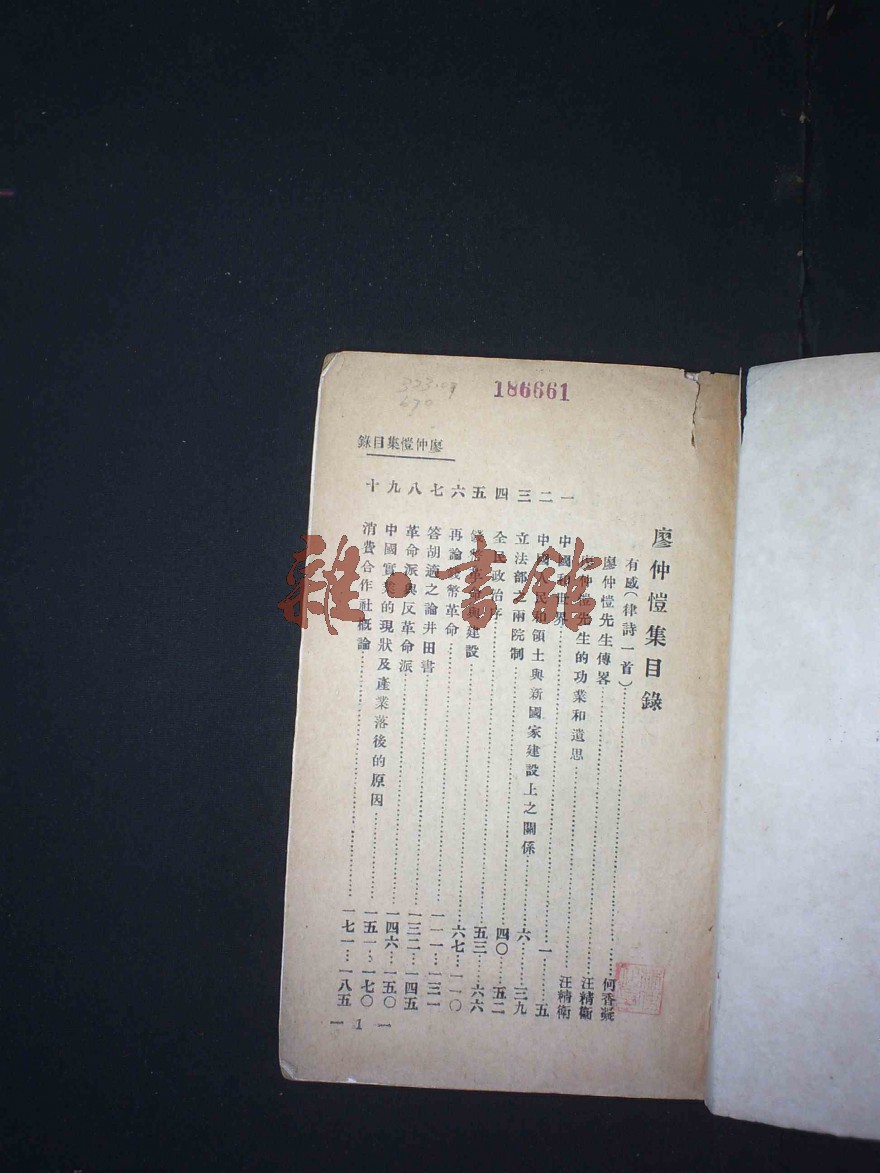 186661
323.09
670
廖仲愷集目錄
廖仲愷集目錄
有感(律詩一首)……何香凝
廖仲愷先生傳畧……汪精衞
廖仲愷先生的功業和遺思……汪精衞
一 中國和世界……一…五
二 中國人民和領土與新國家建設上之關係……六…三九
三 立法部之兩院制……四〇…五二
四 全民政治序……五三…六六
五 錢幣革命與建設……六七…一一〇
六 再論錢幣革命……一一一…一三一
七 答胡適之論井田書……一三二…一四五
八 革命派與反革命派……一四六…一五〇
九 中國實業的現狀及產業落後的原因……一五一…一七〇
十 消費合作社概論……一七一…一八五
— 1 —
雜·書館